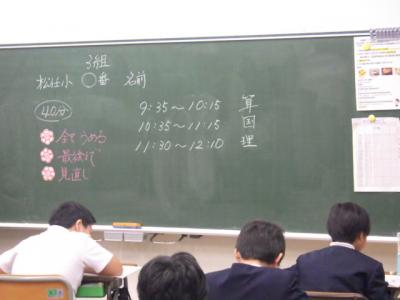 3組
松任小 ○番 名前
40分
9:35～10:15 算
10:35～11:15 国
11:30～12:10 理
全てうめる
最後まで
見直し